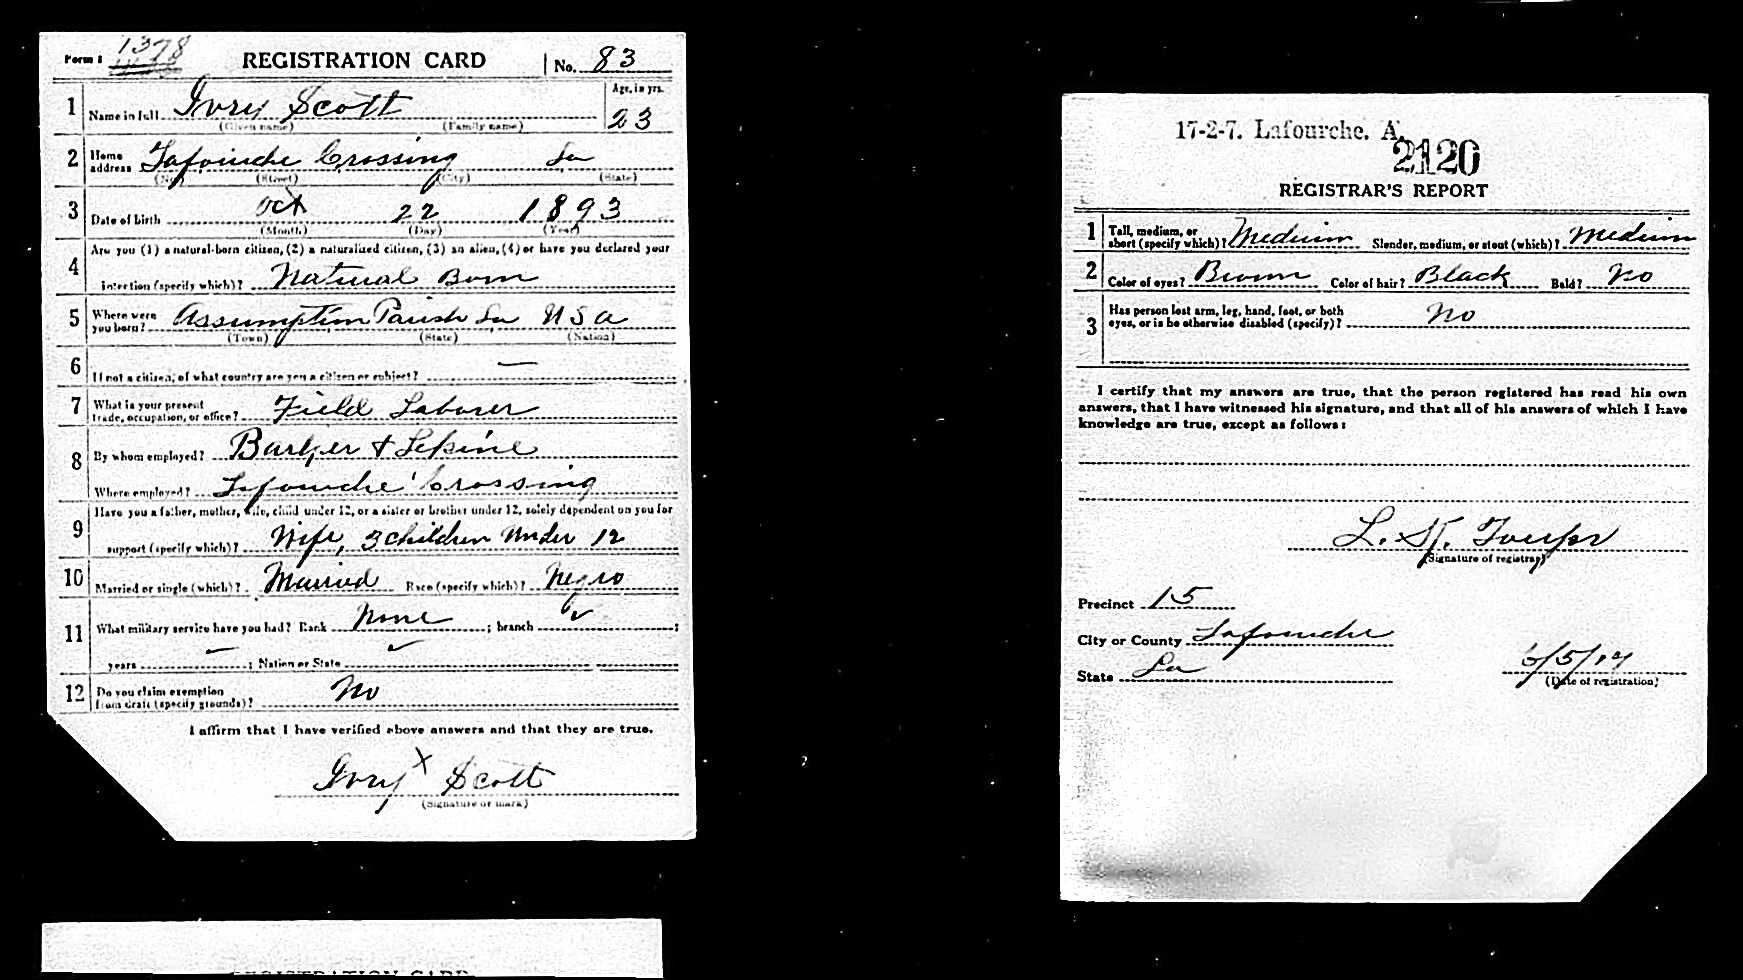 Form 1 1378 REGISTRATION CARD No. 83
1 Name in full Ivry Scott Age, in yrs. 23
(Given name) (Family name)
2 Home address Lafourche Crossing La
(No.) (Street) (City) (State)
3 Date of birth Oct 22 1893
(Month) (Day) (Year)
Are you (1) a natural-born citizen, (2) a naturalized citizen, (3) an alien, (4) or have you declared your
4 intention (specify which)? Natural Born
5 Where were you born? Assumption Parish La USA
(Town) (State) (Nation)
6 If not a citizen, of what country are you a citizen or subject? —
7 What is your present trade, occupation, or office? Field Laborer
8 By whom employed? Barker + Lepine
Where employed? Lafourche Crossing
9 Have you a father, mother, wife, child under 12, or a sister or brother under 12, solely dependent on you for
support (specify which)? Wife, 3 children under 12
10 Married or single (which)? Married Race (specify which)? Negro
11 What military service have you had? Rank None ; branch ;
years ; Nation or State
12 Do you claim exemption from draft (specify grounds)? No
I affirm that I have verified above answers and that they are true.
Ivry X Scott
(Signature or mark)
REGISTRATION CARD
17-2-7. Lafourche. A.
2120
REGISTRAR'S REPORT
1 Tall, medium, or short (specify which)? Medium Slender, medium, or stout (which)? Medium
2 Color of eyes? Brown Color of hair? Black Bald? No
3 Has person lost arm, leg, hand, foot, or both eyes, or is he otherwise disabled (specify)? No
I certify that my answers are true, that the person registered has read his own
answers, that I have witnessed his signature, and that all of his answers of which I have
knowledge are true, except as follows:
L. St.
(Signature of registrar)
Precinct 15
City or County Lafourche
State La 6/5/17
(Date of registration)